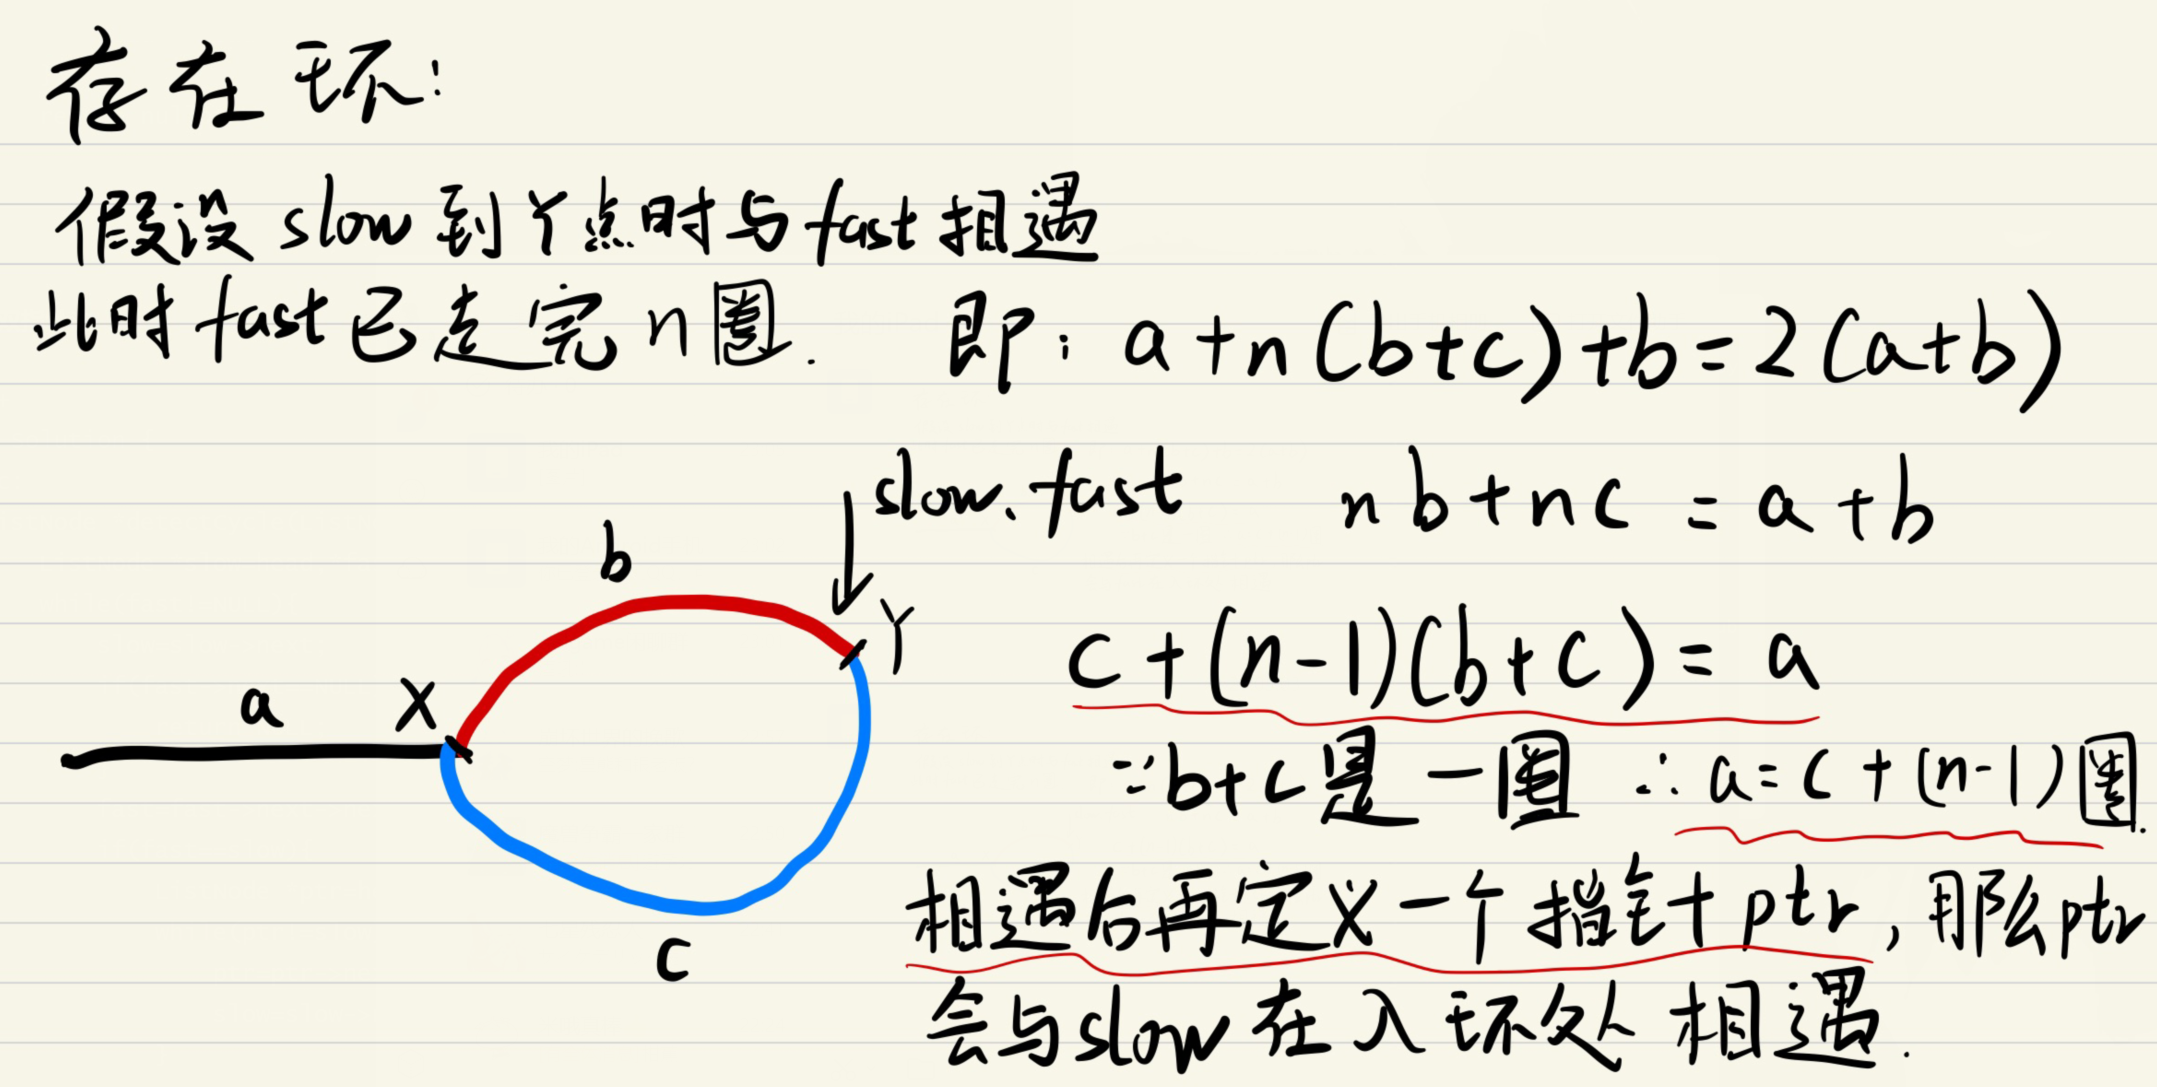 存在环:
假设 slow 到 Y 点时与 fast 相遇
此时 fast 已走完 n 圈.  即: a+n(b+c)+b=2(a+b)
slow、fast  nb+nc = a+b
b
Y
c+(n-1)(b+c) = a
a  X
∵b+c是一圈 ∴a=c+(n-1)圈.
相遇后再定义一个指针ptr, 那么ptr
c
会与slow在入环处相遇.